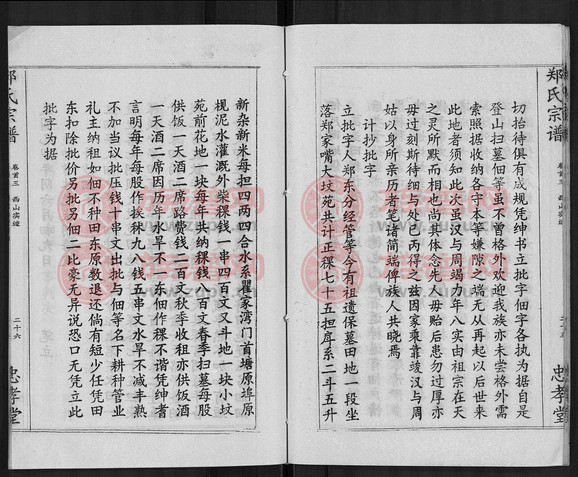 郑氏宗谱
卷首三 西山实迹
二十五
忠孝堂
切抬待俱有成规凭绅书立批字佃字各执为据自是
登山扫墓佃等虽不曾格外欢迎我族亦未尝格外需
索照据收纳各守本等嫌隙之端无从再起以后世来
此地者须知此次虽汉与周竭力年八实由祖宗在天
之灵所默而相也尚其体念先人毋贻后患勿过厚亦
毋过刻斯待细与处包两得之兹因家乘靠竣汉与周
姑以身所亲历者笔诸简端俾族人共晓焉
计抄批字
立批字人郑东分经管等今有祖遗保墓田地一段坐
落郑家嘴大坟苑共计正稞七十五担库系二斗五升
新杂新米每担四两四合水系瞿家湾门首塘原埠原
枧泥水灌溉外柴稞钱一串四百文又斗地一块小坟
苑前花地一块每年共纳稞钱八百文春季扫墓每股
供饭一天酒二席路费钱二百文秋季收祖亦供饭酒
一天酒二席因历年水旱不一东佃作稞不谐凭绅耆
言明每年每股作挨秋九八钱五串文水旱不减丰熟
不加当议批压钱十串文出批与佃等名下耕种管业
礼主纳祖如佃不种田东原数退还倘有短少任凭田
东扣除批价另批另佃二比毫无异说恐口无凭立此
批字为据
郑氏宗谱
卷首三 西山实迹
二十六
忠孝堂